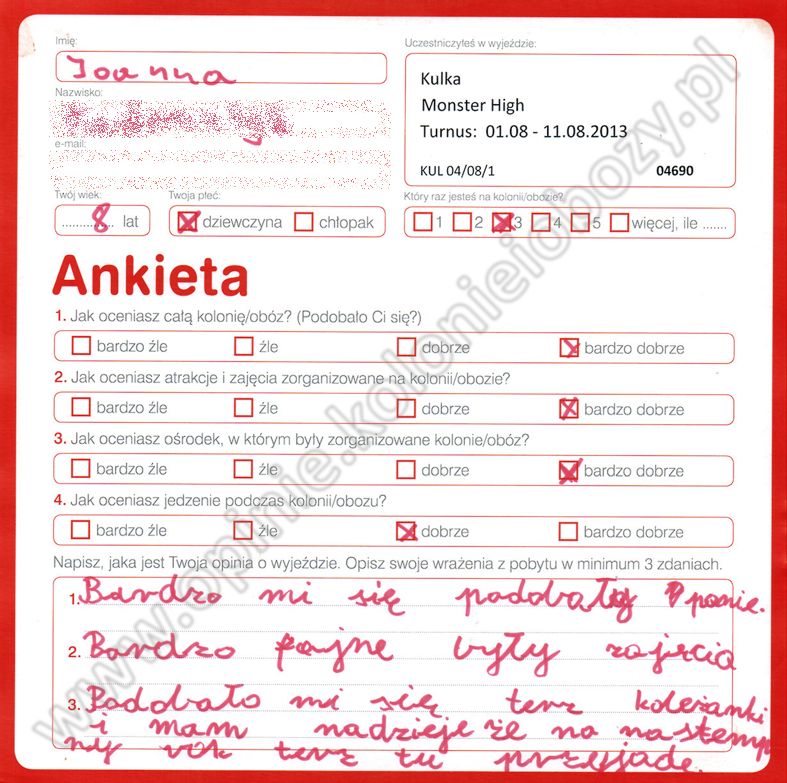 Imię:
Joanna
Uczestniczyłeś w wyjeździe:
Kulka
Monster High
Turnus: 01.08 - 11.08.2013
KUL 04/08/1 04690
Nazwisko:
e-mail:
Twój wiek: Twoja płeć: Który raz jesteś na kolonii/obozie?
8 lat dziewczyna chłopak 1 2 3 4 5 więcej, ile .......
Ankieta
1. Jak oceniasz całą kolonię/obóz? (Podobało Ci się?)
bardzo źle źle dobrze bardzo dobrze
2. Jak oceniasz atrakcje i zajęcia zorganizowane na kolonii/obozie?
bardzo źle źle dobrze bardzo dobrze
3. Jak oceniasz ośrodek, w którym były zorganizowane kolonie/obóz?
bardzo źle źle dobrze bardzo dobrze
4. Jak oceniasz jedzenie podczas kolonii/obozu?
bardzo źle źle dobrze bardzo dobrze
Napisz, jaka jest Twoja opinia o wyjeździe. Opisz swoje wrażenia z pobytu w minimum 3 zdaniach.
1. Bardzo mi się podobały panie.
2. Bardzo fajne były zajęcia
3. Podobało mi się terz koleżanki
i mam nadzieje że na nastemp
ny rok terz tu przyjade.
www.opinie.kolonieiobozy.pl